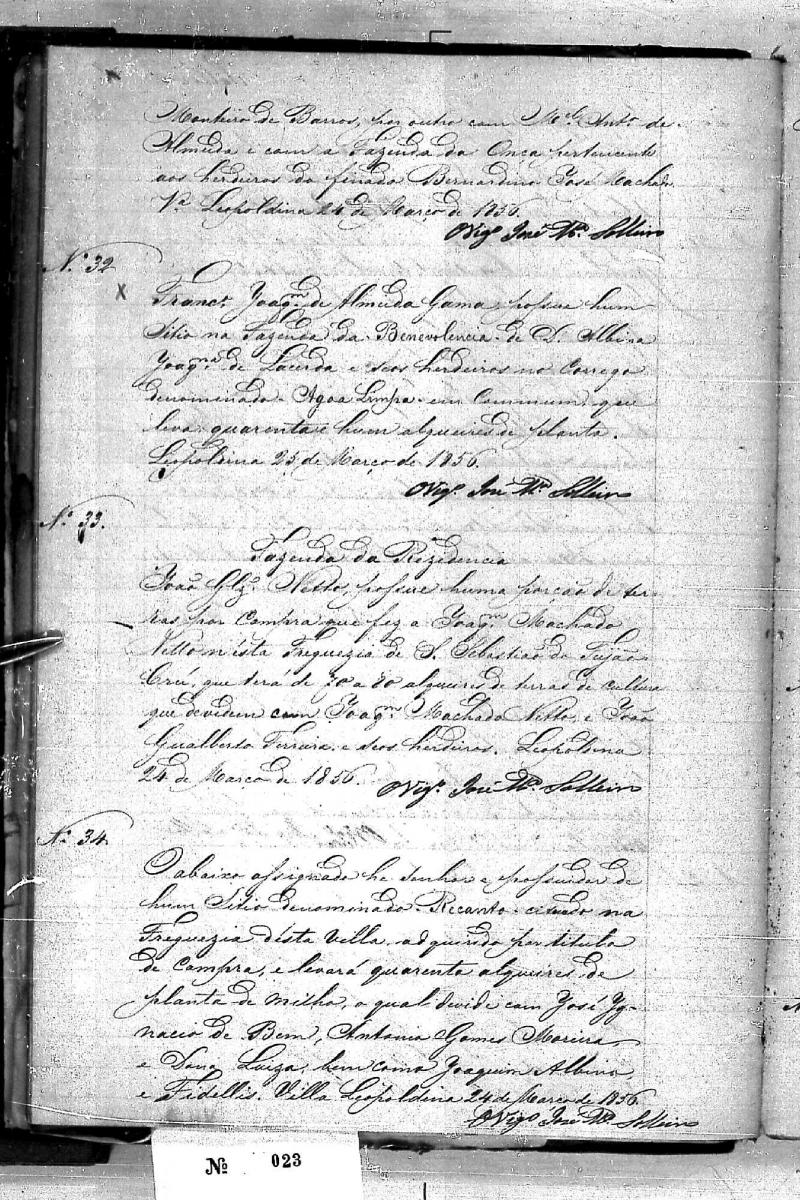 Monteiro de Barros, por outro com M.el Ant.o de
Almeida e com a Fazenda da Onça pertencente
aos herdeiros do finado Bernardino José Machado
V.a Leopoldina 24 de Março de 1856.
O Vig.o José M.a Solleiro
N.o 32
X
Franc.o Joaq.m de Almeida Gama, possue hum
Sitio na Fazenda da Benevolencia de D. Albina
Joaq.na de Lacerda e seos herdeiros no Corrego
denominado Agoa Limpa em Commum que
leva quarenta e hum alqueires de planta.
Leopoldina 25 de Março de 1856.
O Vig.o José M.a Solleiro
N.o 33.
Fazenda da Rezidencia
João Glz. Netto, possue huma porção de ter-
ras por Compra que fez a Joaq.m Machado
Netto nésta Freguezia de S. Sebastiaõ do Feijão
Crú, que terá de 70 a 80 alqueires de terras de cultura
que devidem com Joaq.m Machado Netto, e João
Gualberto Ferreira, e seos herdeiros. Leopoldina
24 de Março de 1856.
O Vig.o José M.a Solleiro
N.o 34.
O abaixo assignado he Senhor e possuidor de
hum Sitio denominado Recanto cituado na
Freguezia désta Villa, adquirido por titulo
de Compra, e levará quarenta alqueires de
planta de milho, o qual devide com José Yg-
nacio de Bem, Antonio Gomes Moreira
e Dona Luiza, bem como Joaquim Albino
e Fidellis. Villa Leopoldina 24 de Março de 1856.
O Vig.o José M.a Solleiro
No 023